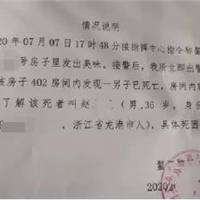 情况说明
20 年 07 月 07 日 17 时 48 分接指挥中心指令称
号房子里发出臭味。接警后，我所立即出警
该房子 402 房间内发现一男子已死亡，房间内
了解该死者叫赵 （男，36 岁，身份
，浙江省龙港市人），具体死因
2020